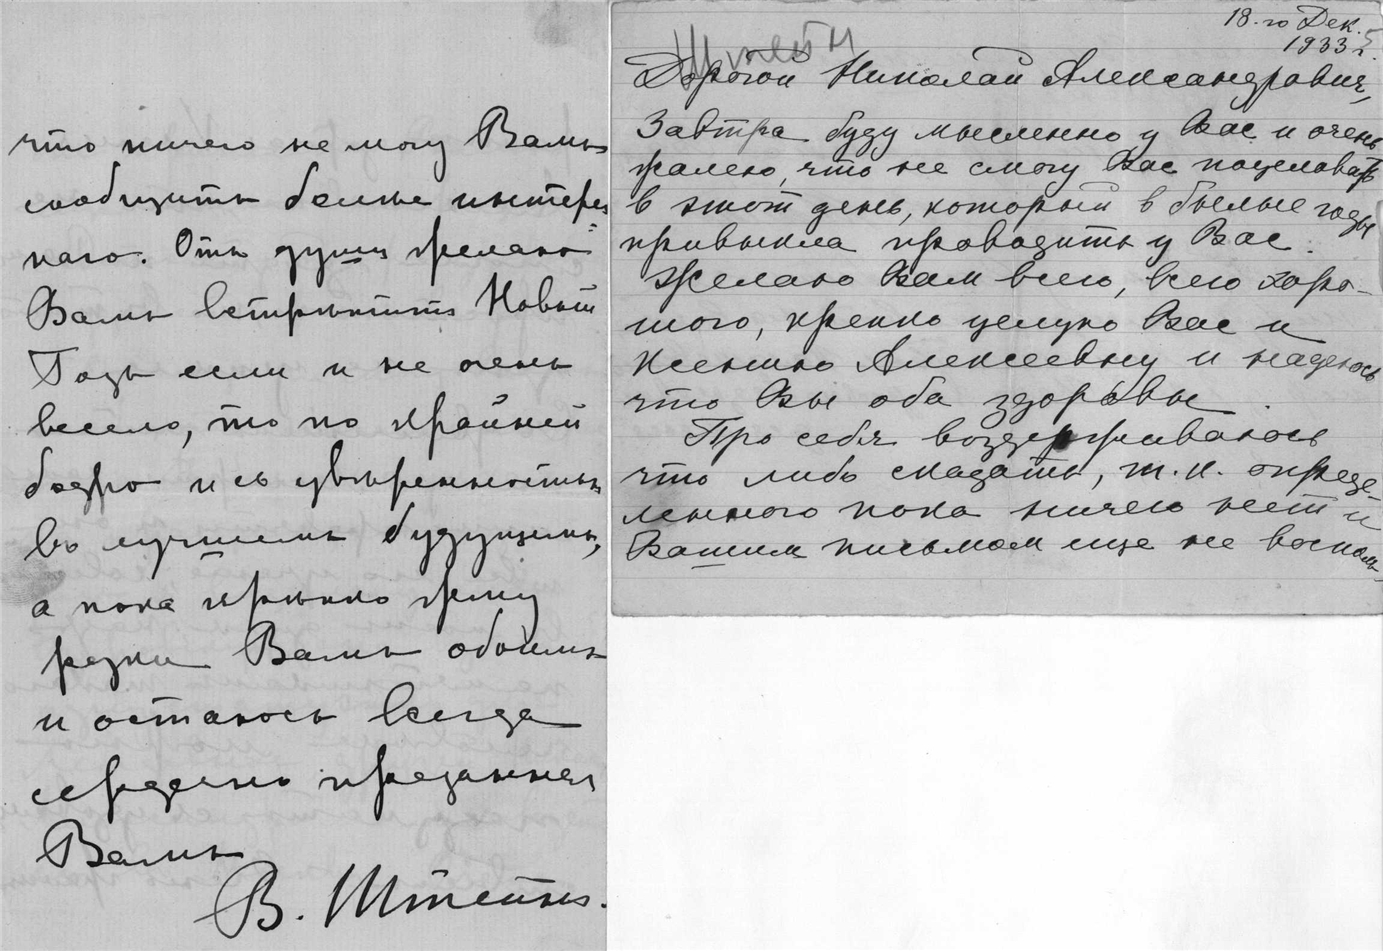 что ничего не могу Вамъ
сообщить болѣе интерес-
наго. Отъ души желаю
Вамъ встрѣтить Новый
Годъ если и не очень
весело, то по крайней
бодро и съ увѣренностью
въ лучшемъ будущемъ,
а пока крѣпко жму
руки Вамъ обоимъ
и остаюсь всегда
сердечно преданная
Вамъ
В. Штейнъ.
18-го Дек.
1933 г.
Штейн
Дорогой Николай Александрович,
Завтра буду мысленно у Вас и очень
жалею, что не смогу Вас поцеловать
в этот день, который в былые годы
привыкла проводить у Вас.
Желаю Вам всего, всего хоро-
шого, крепко целую Вас и
Ксению Алексеевну и надеюсь
что Вы оба здоровы.
Про себя воздерживаюсь
что либо сказать, т.к. опреде-
ленного пока ничего нет и
Вашим письмом еще не восполь-